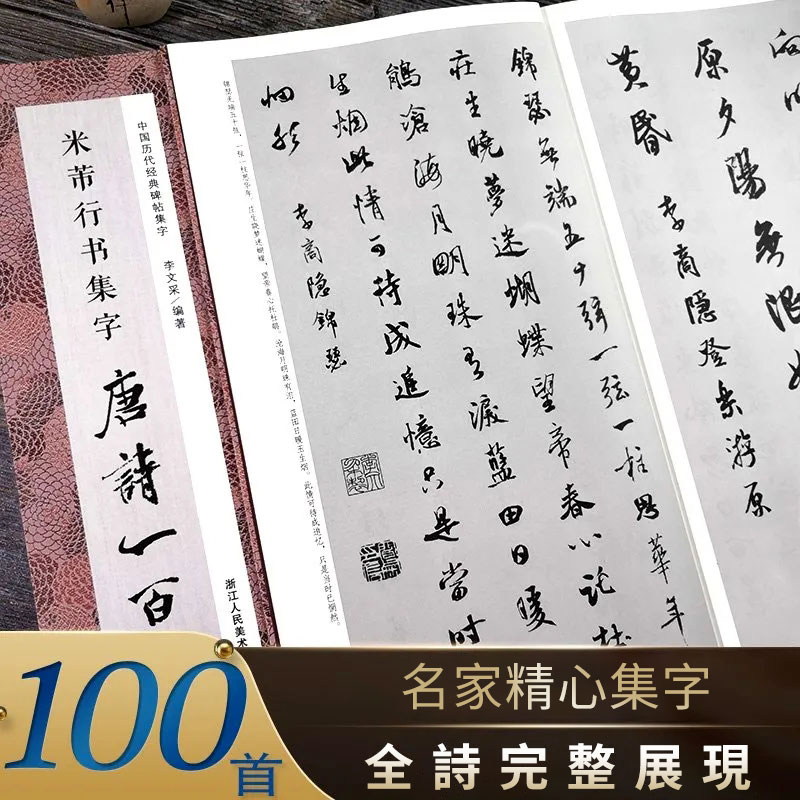 中国历代经典碑帖集字 李文采/编著
米芾行书集字
唐詩一百
浙江人民美术
原夕陽無限
黄昏 李商隐登樂游原
錦瑟無端五十弦一弦一柱思華年
莊生曉夢迷蝴蝶望帝春心託杜
鵑滄海月明珠有淚藍田日暖
生烟此情可待成追憶只是當時
惘然
李商隐錦瑟
锦瑟无端五十弦，一弦一柱思华年。庄生晓梦迷蝴蝶，望帝春心托杜鹃。沧海月明珠有泪，蓝田日暖玉生烟。此情可待成追忆，只是当时已惘然。
100首
名家精心集字
全詩完整展現